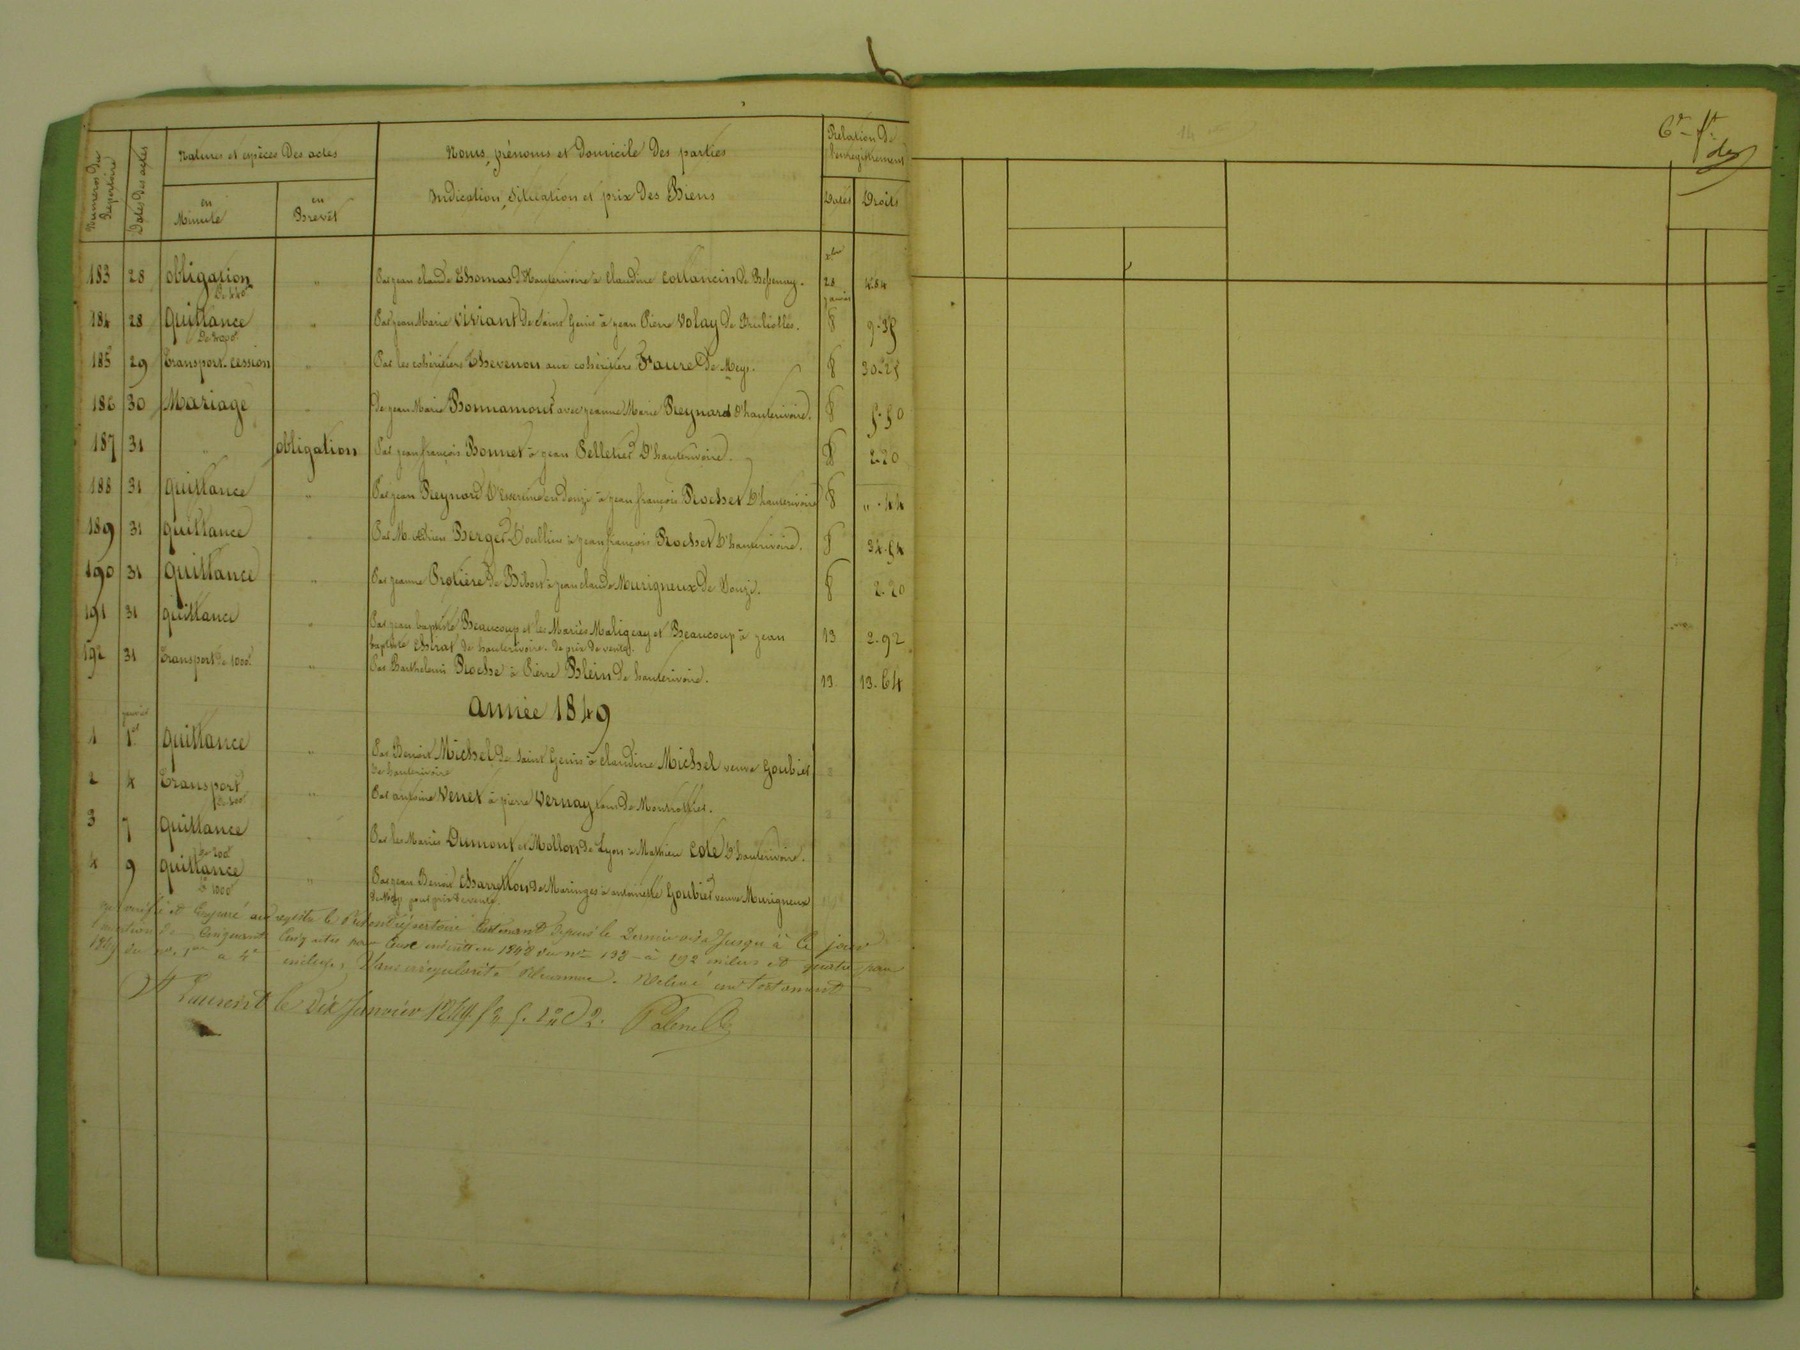 Numéros du Répertoire
Dates des actes
Natures et espèces des actes
en Minute
en Brevet
Noms, prénoms et domicile des parties
Indication, Situation et prix des Biens
Relation de l'enregistrement
Dates
Droits
183 28 obligation " Par jean claude Thomas d'hauterivoire à claudine Collancin de Bessenay. 28 4.84
184 28 quittance " Par jean Marie Viviant de Saint Genis à jean Pierre Volay de Brulliolles. 8 9-35
janvier
185 29 Transport-cession " Par les cohéritiers Thevenon aux cohéritiers Faure de Meys. 8 30-25
186 30 Mariage " de jean Marie Bonnamour avec jeanne Marie Reynard d'hauterivoire. 8 5-50
187 31 " obligation Par jean françois Bonnet à jean Pelletier d'hauterivoire. 8 2-20
188 31 quittance " Par jean Reynard d'Essertine en Donzy à jean françois Rochet d'hauterivoire 8 " - 44
189 31 quittance " Par M. Berger à jean françois Rochet d'hauterivoire. 8 34-54
190 31 quittance " Par jeanne Protière de Bibost à jean claude Murigneux de Donzy. 8 2-20
191 31 quittance " Par jean baptiste Beaucoup et les Mariés Maligeay et Beaucoup à jean 13 2-92
baptiste de hauterivoire. de prix de vente.
192 31 Transport de 1000f " Par Barthelemi Roche à Pierre Blein de hauterivoire. 13 13-64
année 1849
janvier
1 1er quittance " Par Benoit Michel de Saint Genis à claudine Michel veuve Goubier
de hauterivoire
2 4 Transport " Par antoine Venet à pierre Vernay tous de Montrottier.
3 7 quittance " Par les Mariés Dumont et Mollon de Lyon à Mathieu Cote d'hauterivoire.
de 200f
4 9 quittance " Par jean Benoit Charretton de Maringes à antoinette Goubier veuve Murigneux
de 1000f
de Meys pour prix de vente.
vérifié et le Présent répertoire Contenant depuis le Dernier visa Jusqu'à Ce jour
mention de Cinquante Cinq actes pour 1848 du no 138 à 192 inclus et quatre pour
1849 du no 1er a 4e inclus, Sans irrégularité Reconnue. Relevé un testament
St Laurent le Dix Janvier 1849
6e ft